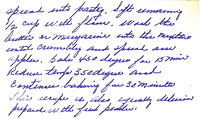 spread into pastry. Sift remaining
1/2 cup with flour. Work the
butter or margarine into the mixture
until crumbly and spread over
apples. Bake 450 degree for 15 min
Reduce temp 350 degree and
continue baking for 30 minutes
This recipe is also equally delicious
prepared with fresh peaches.